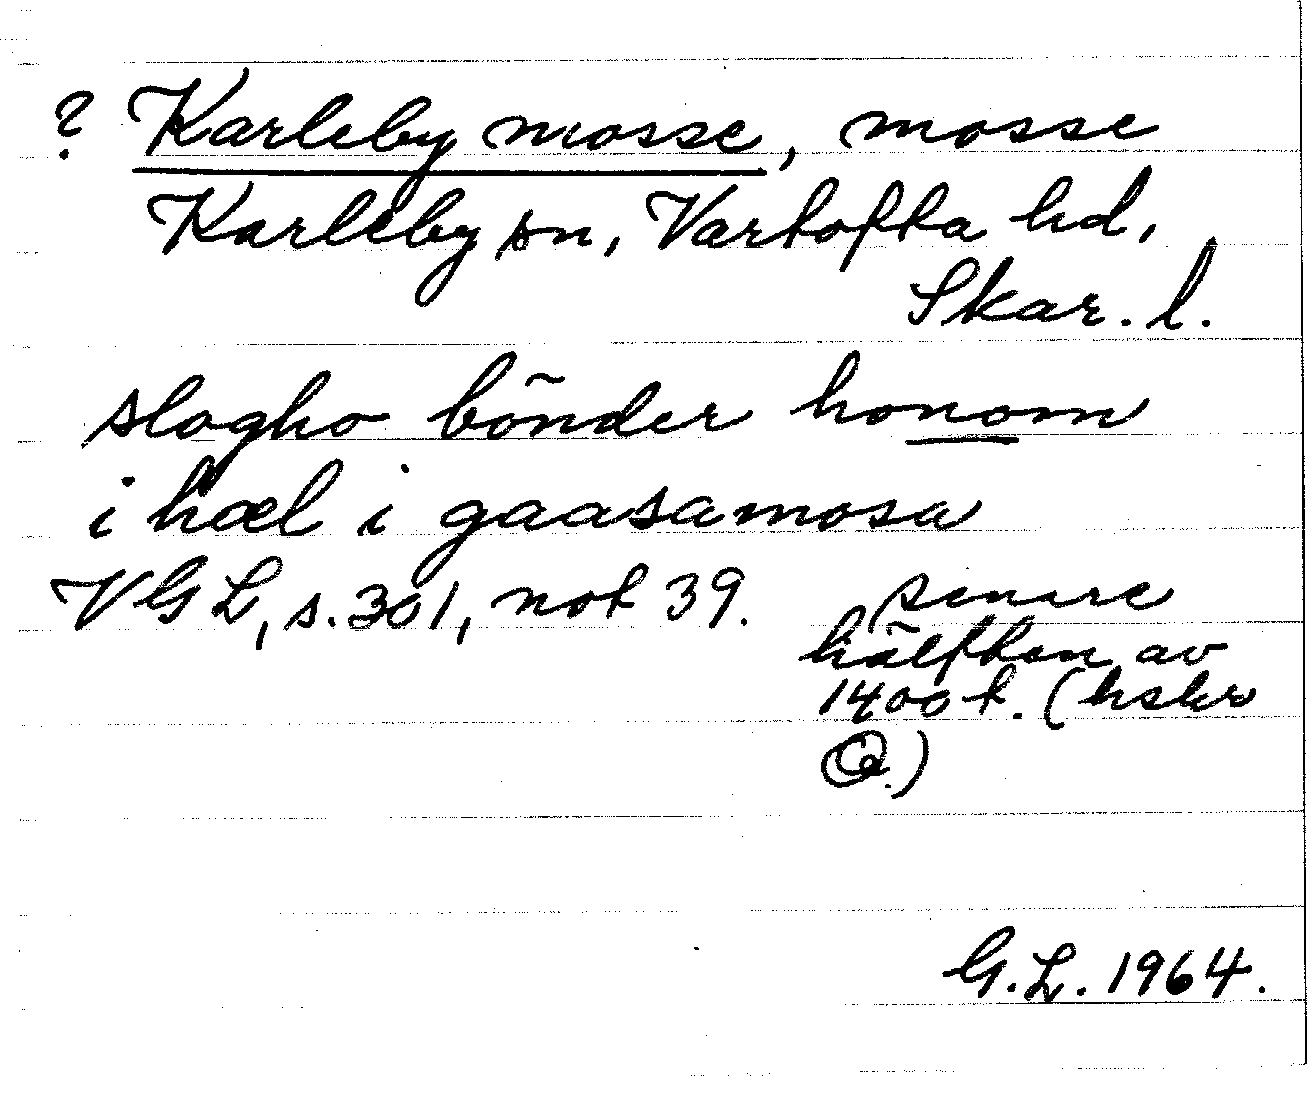 ? Karleby mosse, mosse
Karleby sn, Vartofta hd,
Skar. l.
slogho bönder honom
i hæl i gaasamosa
VGL, s. 301, not 39.
senare
hälften av
1400 t. (hskr
Q.)
G.L. 1964.